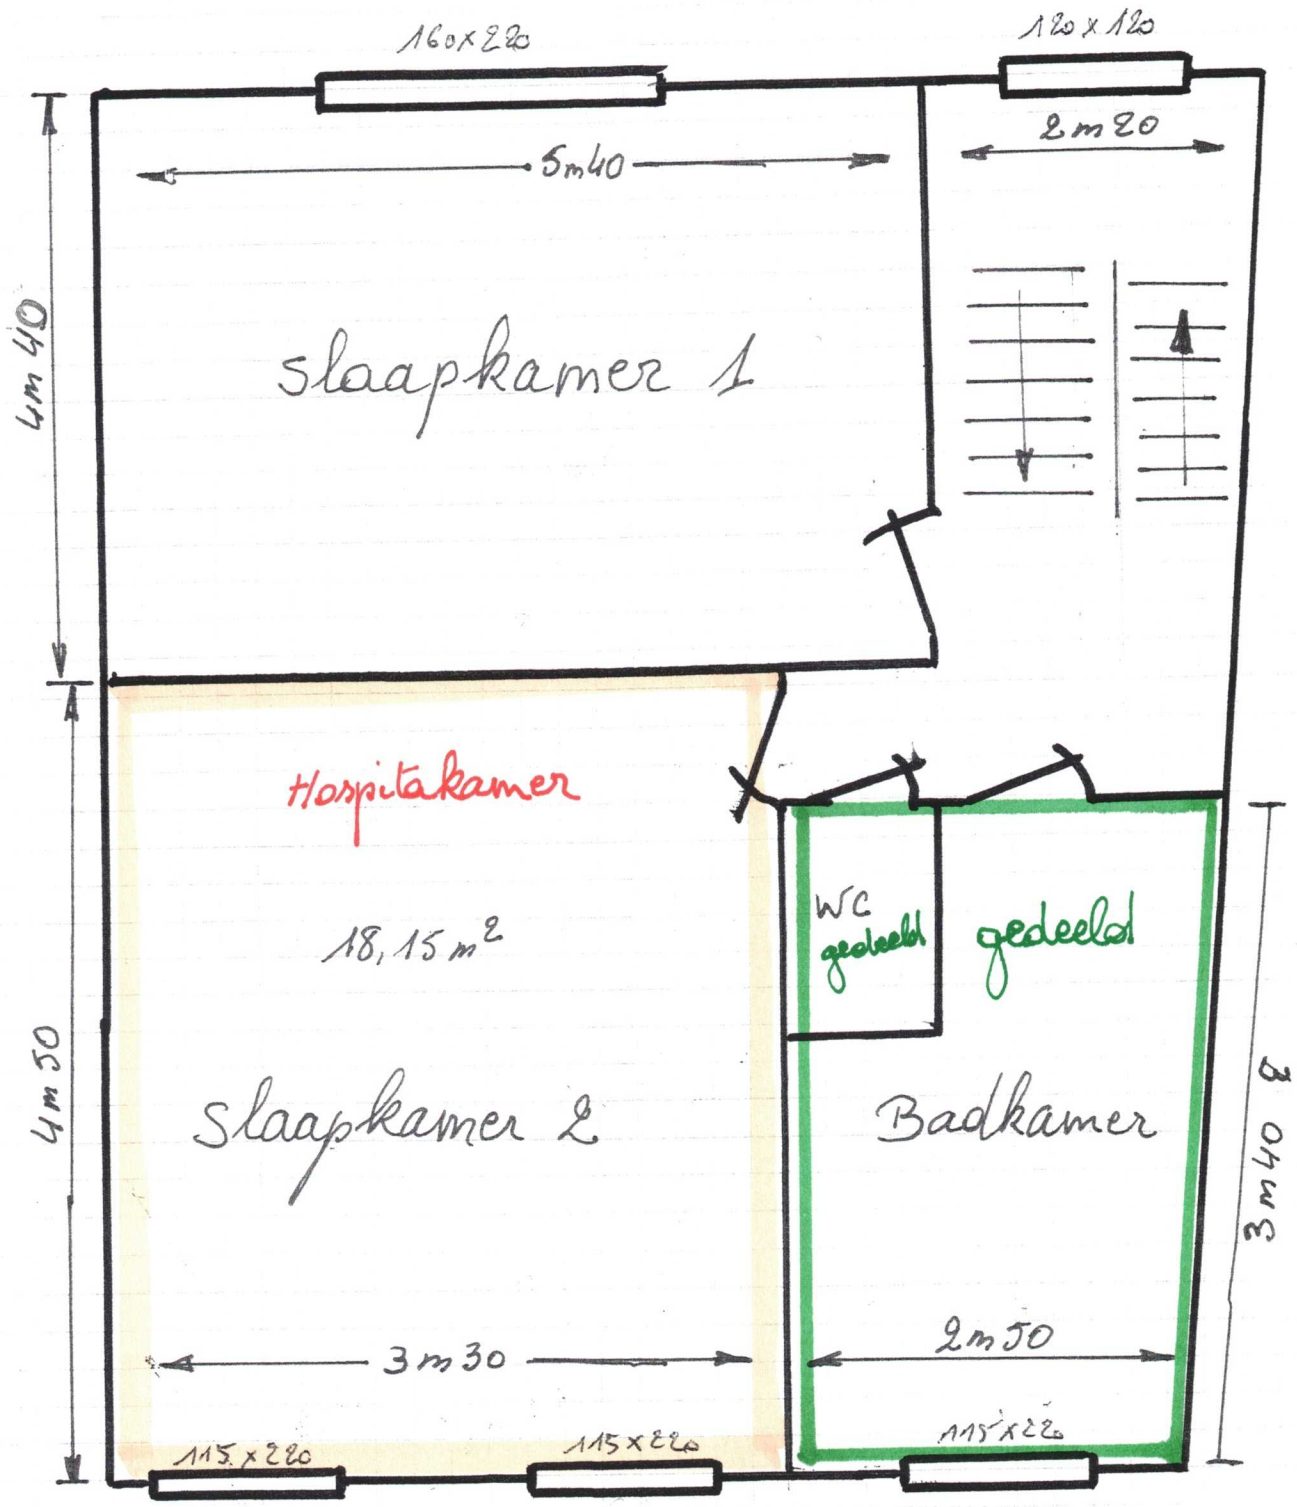 160x220
120x120
5m40
2m20
4m 40
slaapkamer 1
Hospitakamer
18,15 m²
WC
gedeeld
gedeeld
4m 50
slaapkamer 2
Badkamer
3m40
3m30
2m50
115x220
115x220
115x220